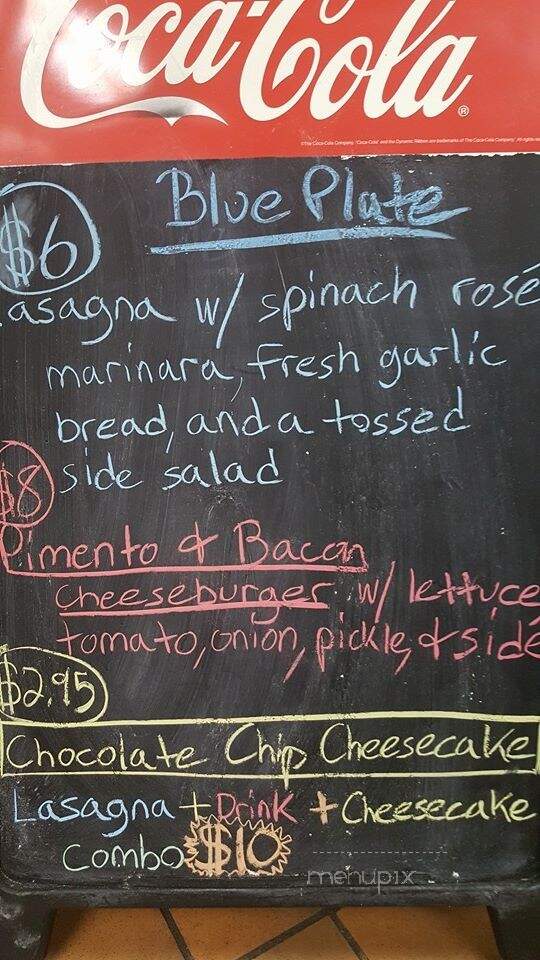 Coca-Cola®
©The Coca-Cola Company. "Coca-Cola" and the Dynamic Ribbon are trademarks of The Coca-Cola Company. All rights
$6 Blue Plate
Lasagna w/ spinach rosé
marinara, fresh garlic
bread, and a tossed
side salad
$8
Pimento & Bacon
cheeseburger w/ lettuce
tomato, onion, pickle, & side
$2.95
Chocolate Chip Cheesecake
Lasagna + Drink + Cheesecake
Combo $10
menupix